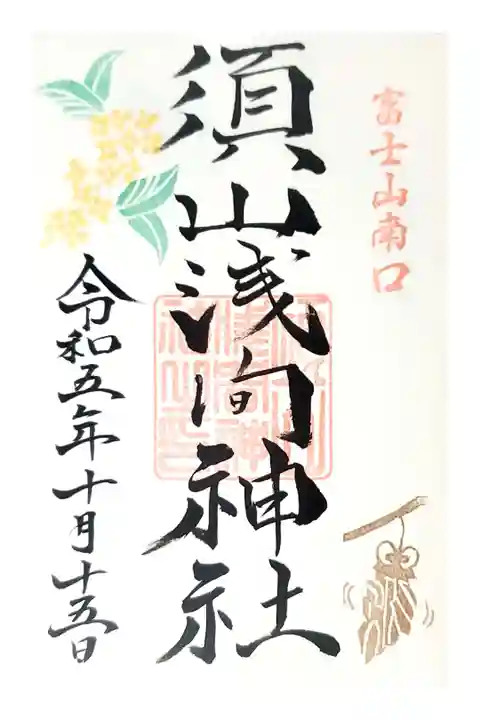 富士山南口
須山浅间神社
令和五年十月十五日